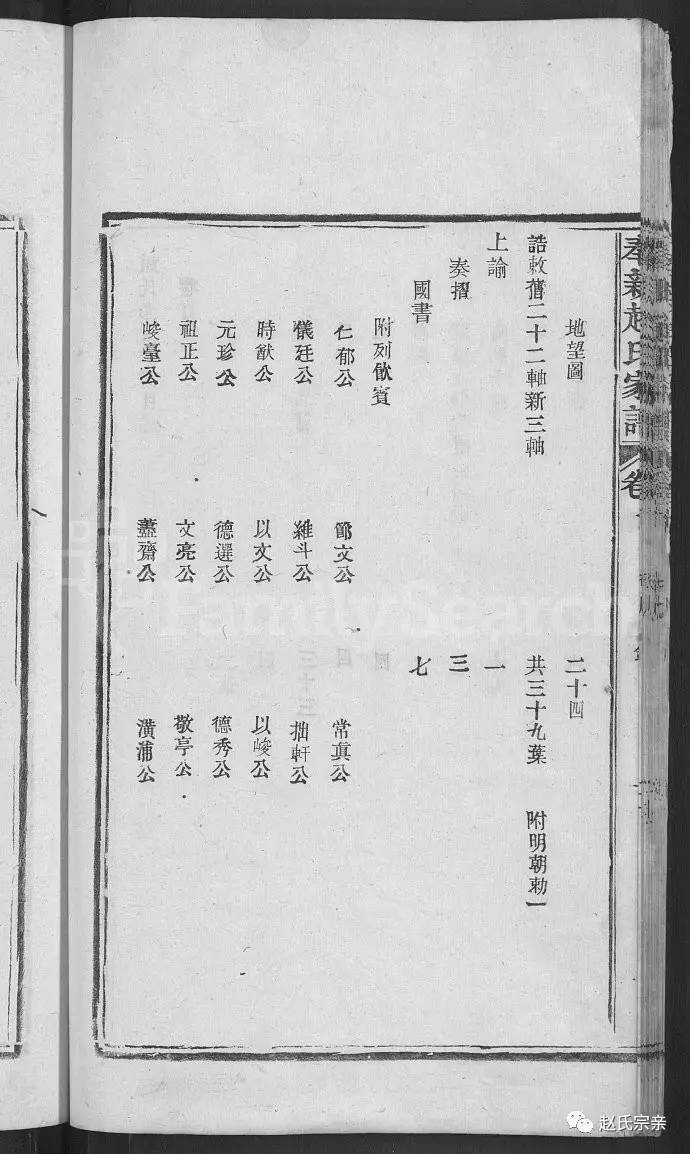 奉新趙氏家譜 卷
地望圖 二十四
誥敕舊二十二軸新三軸 共三十九葉 附明朝勅一
上諭 一
奏摺 三
國書 七
附列飲賓
仁郁公 節文公 常真公
儀廷公 維斗公 拙軒公
時猷公 以文公 以峻公
元珍公 德選公 德秀公
祖正公 文亮公 敬亭公
峻臺公 藎齋公 潢浦公
FamilySearch
赵氏宗亲